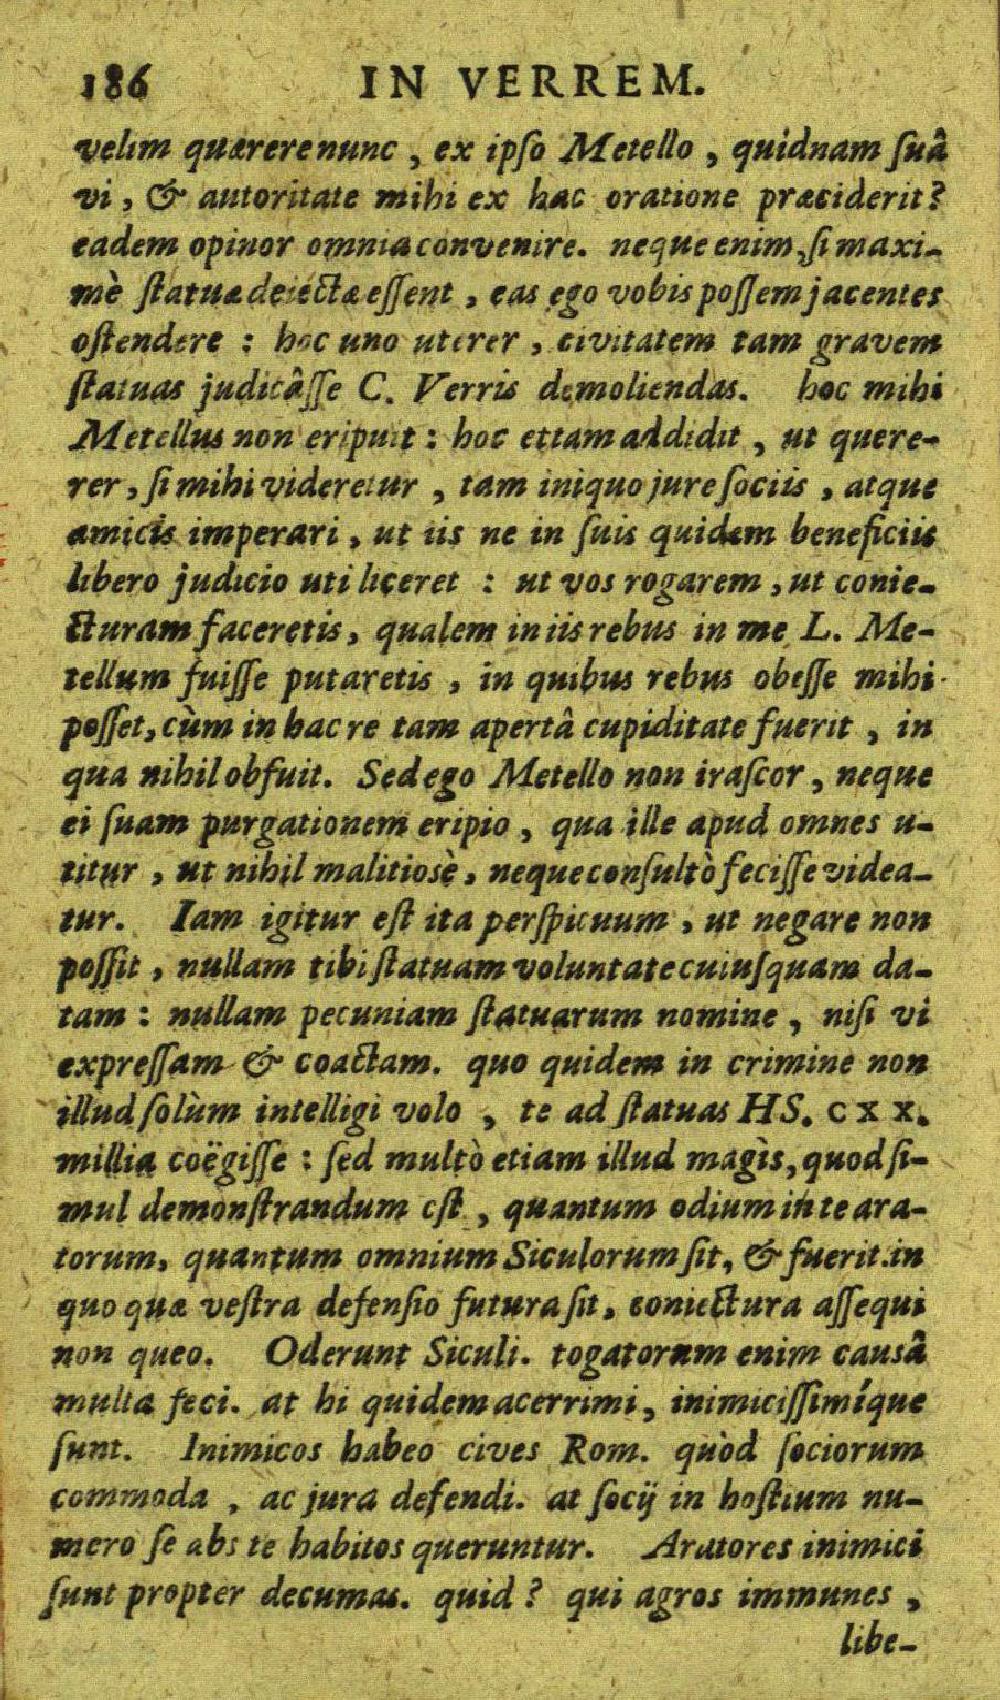 186 IN VERREM.
velim quærere nunc, ex ipſo Metello, quidnam ſuâ
vi, & autoritate mihi ex hac oratione præciderit?
eadem opinor omnia convenire. neque enim, ſi maxi-
mè ſtatuæ deiectæ eſſent, eas ego vobis poſſem jacentes
oſtendere : hoc uno uterer, civitatem tam gravem
ſtatuas judicâſſe C. Verris demoliendas. hoc mihi
Metellus non eripuit : hoc ettam addidit, ut quere-
rer, ſi mihi videretur, tam iniquo jure ſociis, atque
amicis imperari, ut iis ne in ſuis quidem beneficiis
libero judicio uti liceret : ut vos rogarem, ut conie-
cturam faceretis, qualem in iis rebus in me L. Me-
tellum fuiſſe putaretis, in quibus rebus obeſſe mihi
poſſet, cùm in hac re tam apertâ cupiditate fuerit, in
qua nihil obfuit. Sed ego Metello non iraſcor, neque
ei ſuam purgationem eripio, qua ille apud omnes u-
titur, ut nihil malitiosè, neque conſultò feciſſe videa-
tur. Iam igitur eſt ita perſpicuum, ut negare non
poſſit, nullam tibi ſtatuam voluntate cuiuſquam da-
tam : nullam pecuniam ſtatuarum nomine, niſi vi
expreſſam & coactam. quo quidem in crimine non
illud ſolùm intelligi volo, te ad ſtatuas HS. CXX.
millia coëgiſſe : ſed multò etiam illud magìs, quod ſi-
mul demonſtrandum eſt, quantum odium in te ara-
torum, quantum omnium Siculorum ſit, & fuerit. in
quo quæ veſtra defenſio futura ſit, coniectura aſſequi
non queo. Oderunt Siculi. togatorum enim causâ
multa feci. at hi quidem acerrimi, inimiciſſimíque
ſunt. Inimicos habeo cives Rom. quòd ſociorum
commoda, ac jura defendi. at ſocij in hoſtium nu-
mero ſe abs te habitos queruntur. Aratores inimici
ſunt propter decumas. quid? qui agros immunes,
libe-